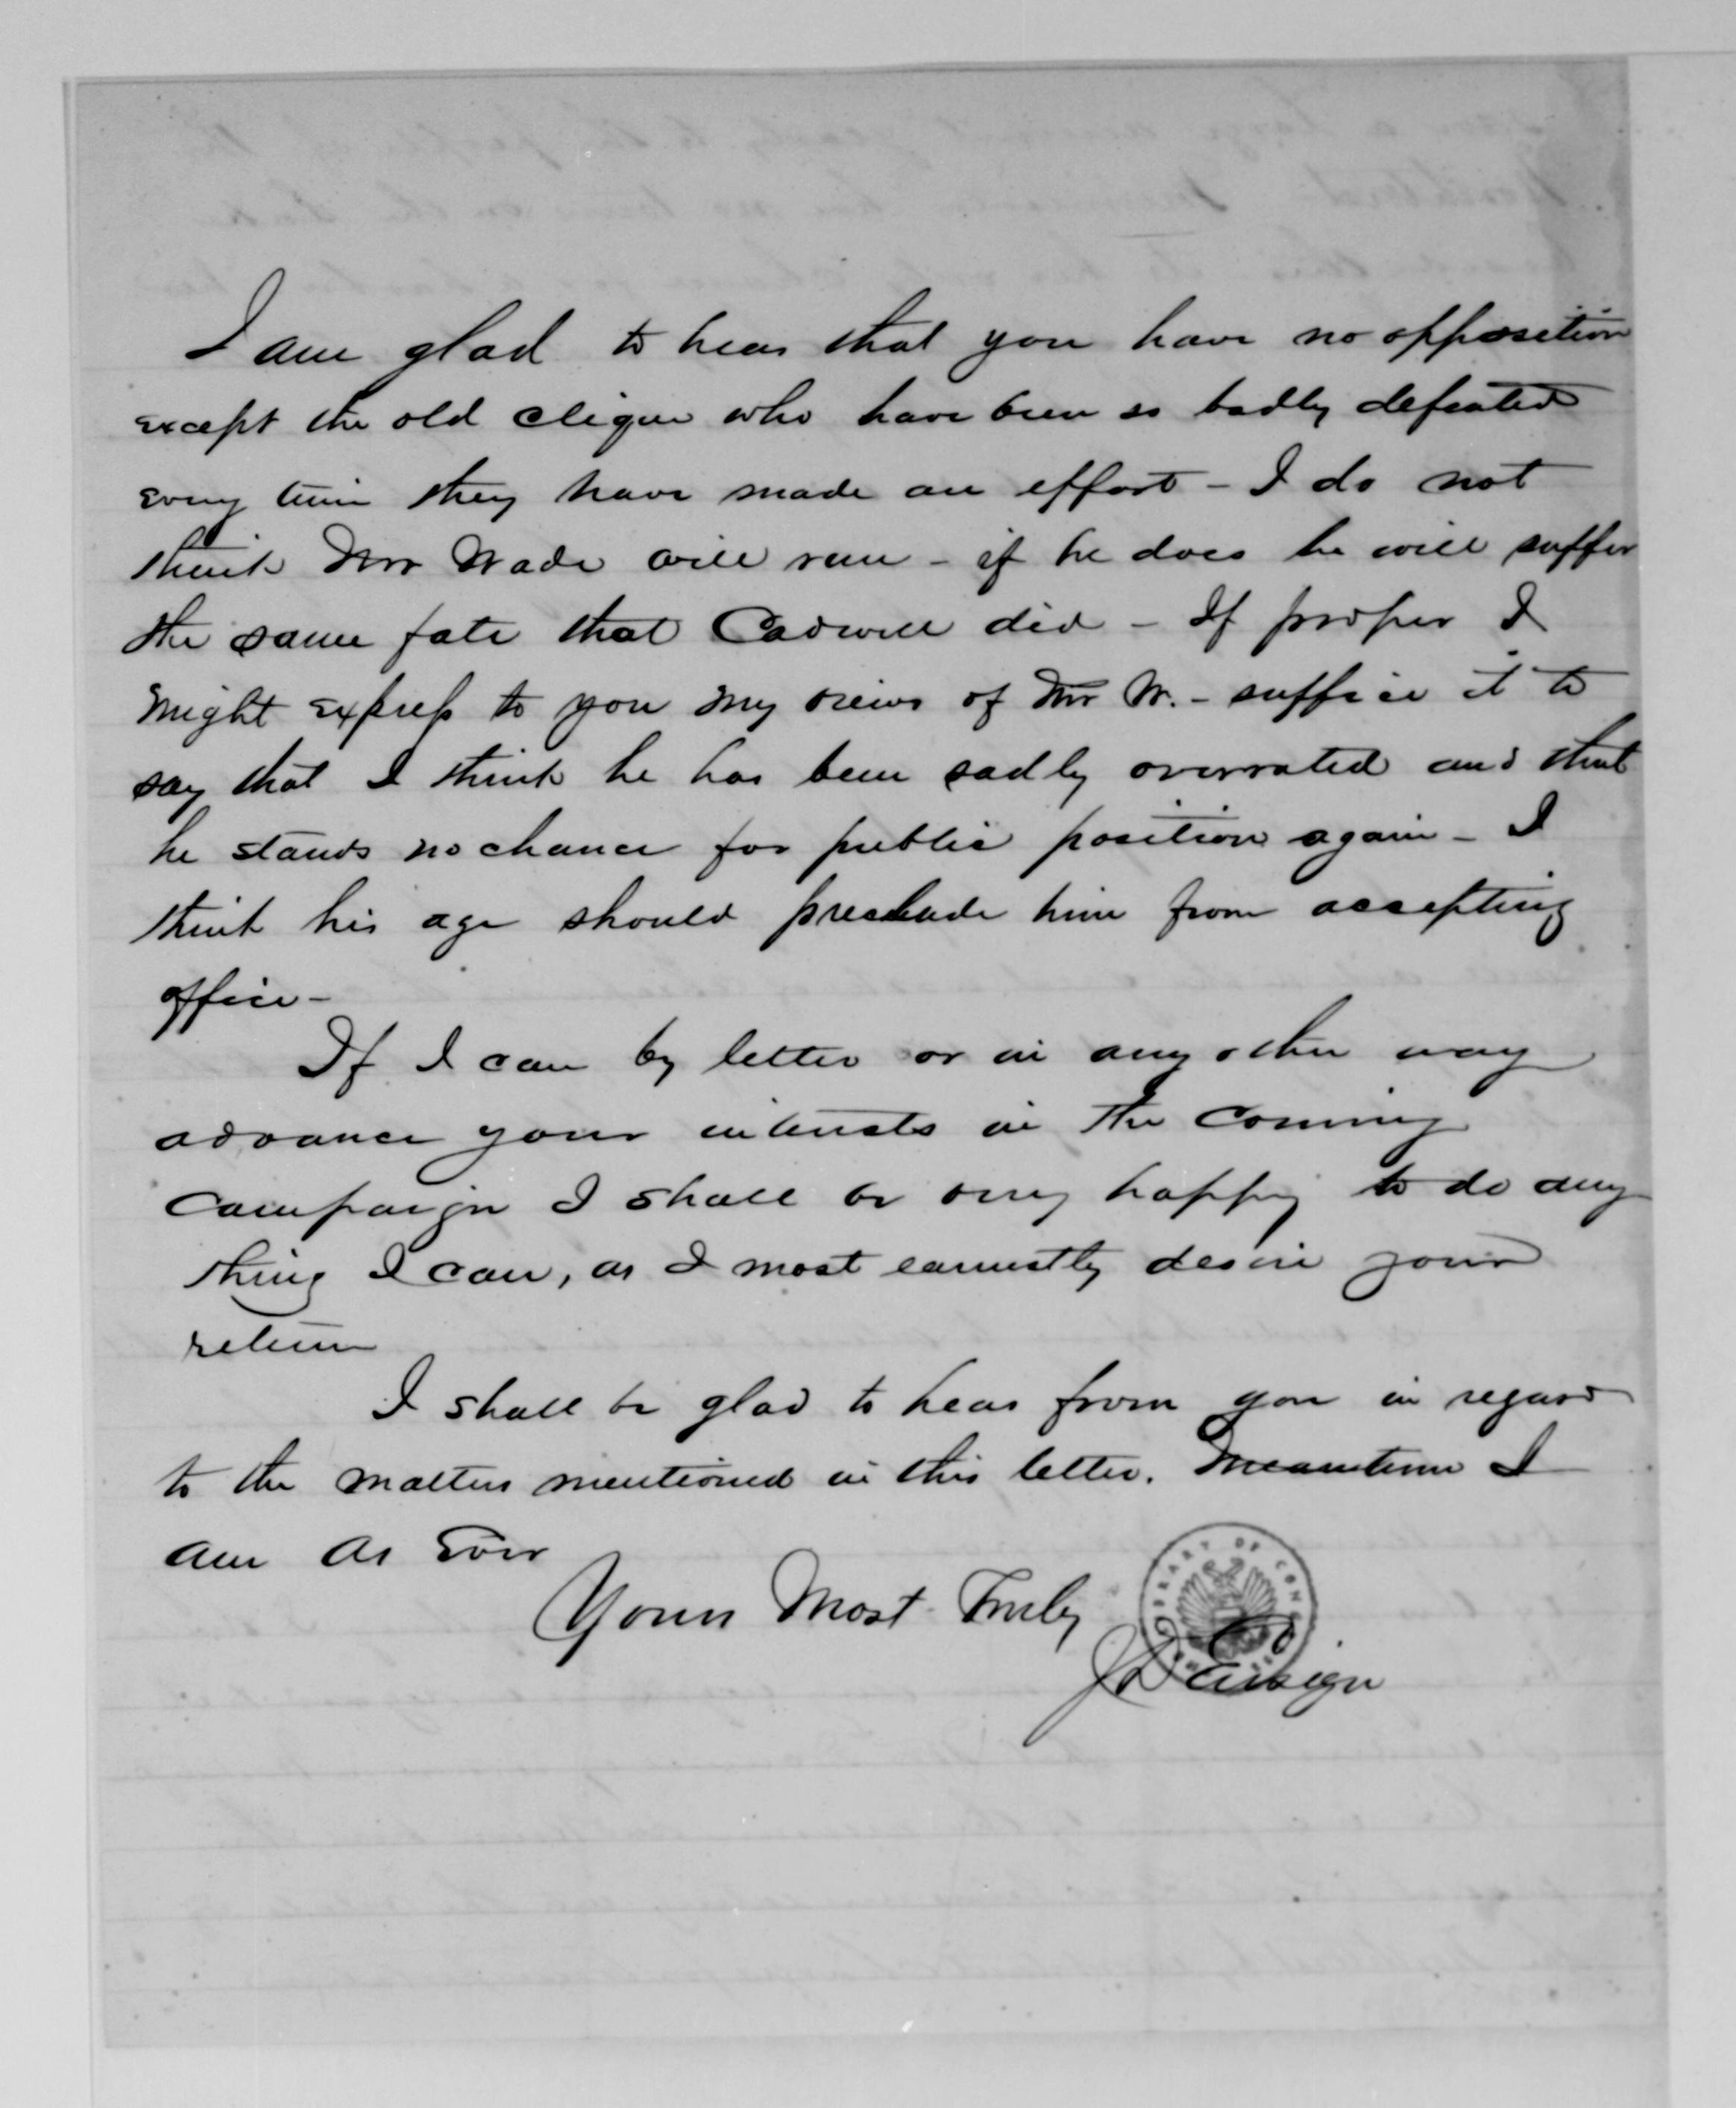 I am glad to hear that you have no opposition
except the old clique who have been so badly defeated
every time they have made an effort - I do not
think Mr Wade will run - if he does he will suffer
the same fate that Cadwell did - If proper I
might express to you my views of Mr W. - suffice it to
say that I think he has been sadly overrated and that
he stands no chance for public position again - I
think his age should preclude him from accepting
office -
If I can by letter or in any other way
advance your interests in the coming
campaign I shall be very happy to do any
thing I can, as I most earnestly desire your
return
I shall be glad to hear from you in regard
to the matters mentioned in this letter. Meantime I
am as ever
Yours Most Truly
LIBRARY OF CONGRESS
JD Ensign